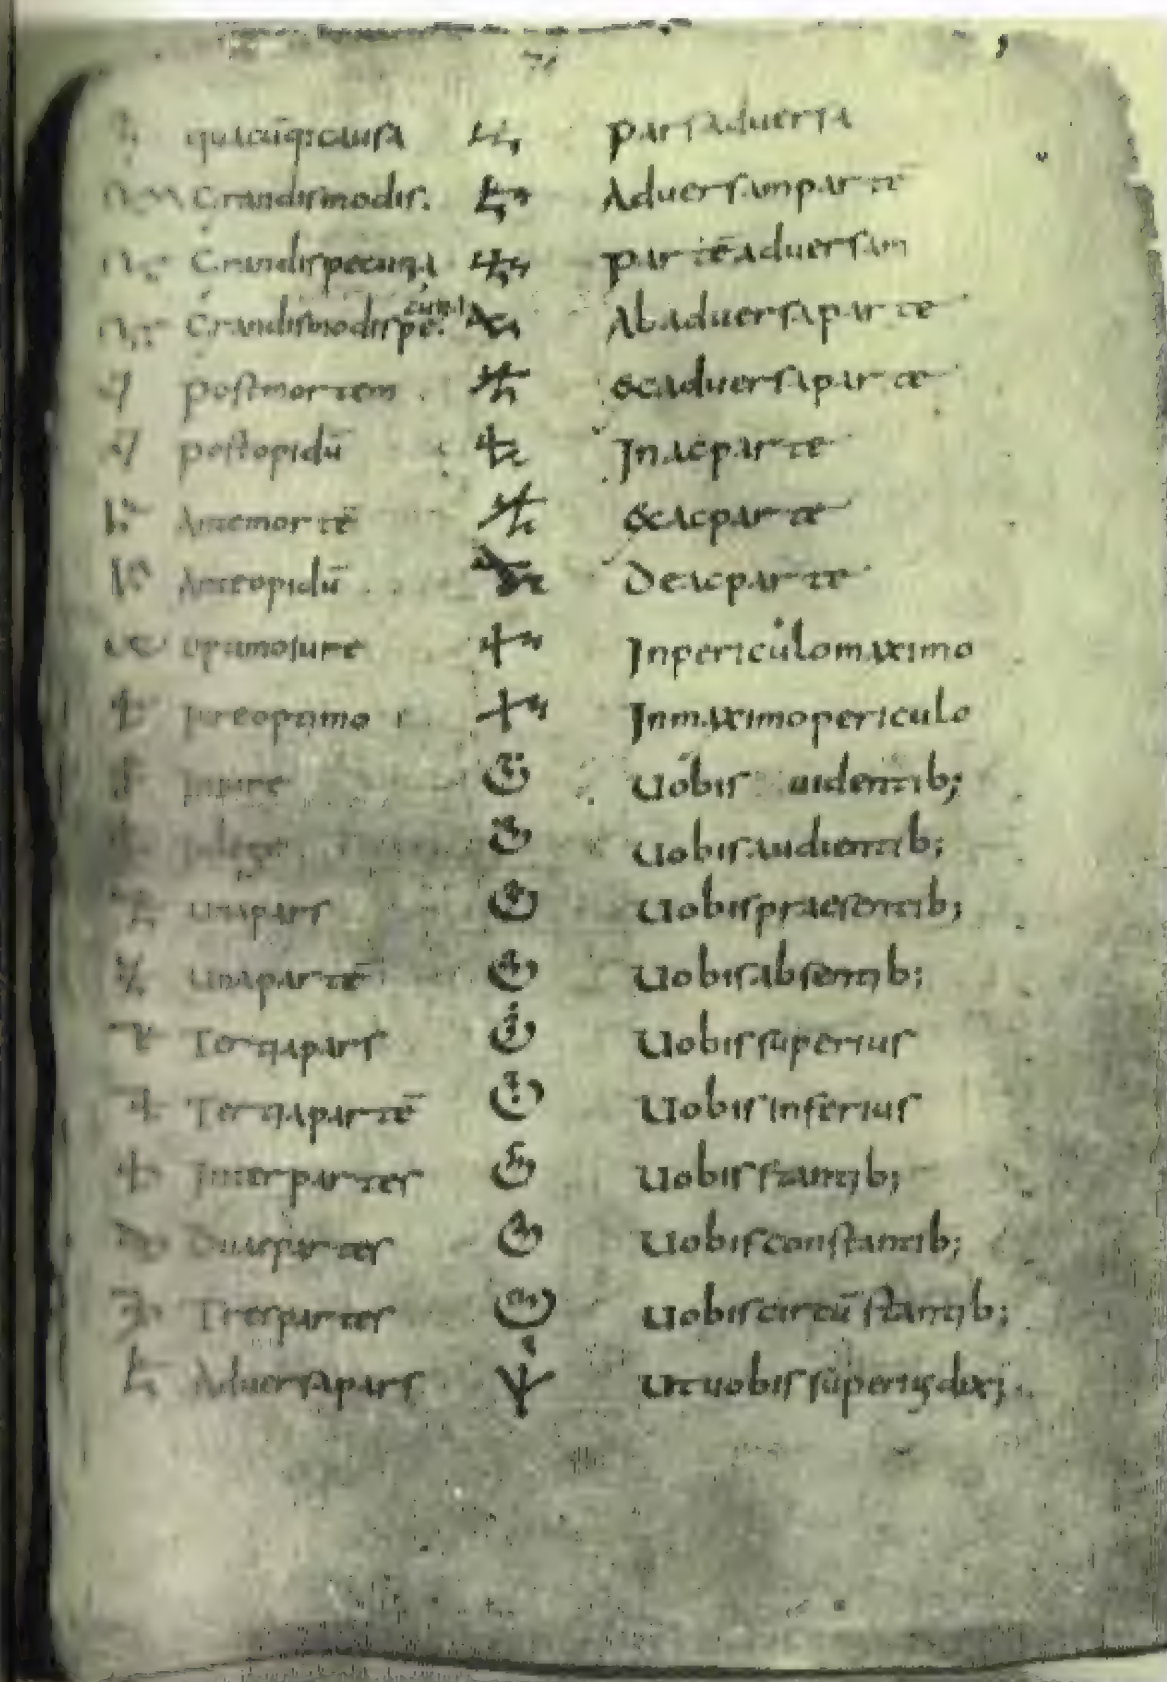 quacūq;causa
Grandismodis.
Grandispecunia
Grandismodispe.cunia
postmortem
postopidū
Antemortē
Anteopidū
optimoiure
Iureoptimo
Iniure
Inlege
Unapars
Unapartē
Tertiapars
Tertiapartē
Interpartes
Duaspartes
Trespartes
Aduersapars
parsaduersa
Aduersampartē
partēaduersam
Abaduersaparte
&aduersaparte
Inacparte
&acparte
Deacparte
Inpericulomaximo
Inmaximopericulo
Uobis uidentib;
Uobisaudientib;
Uobispraesentib;
Uobisabsentib;
Uobissuperius
Uobisinferius
Uobisstantib;
Uobisconstantib;
Uobiscircūstantib;
Utuobissuperiusdixi;